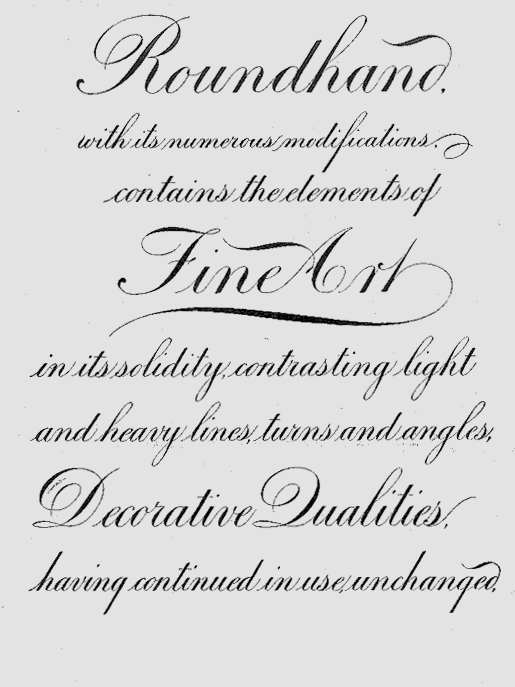 Roundhand,
with its numerous modifications,
contains the elements of
Fine Art
in its solidity, contrasting light
and heavy lines, turns and angles,
Decorative Qualities,
having continued in use, unchanged,